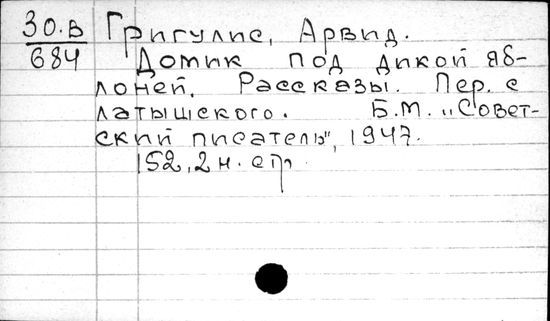 30.В Григулис, Арвид.
684 Домик под дикой яб-
лоней. Рассказы. Пер. с
латышского. Б.М. „Совет-
ский писатель", 1947.
152, 2 н. стр.